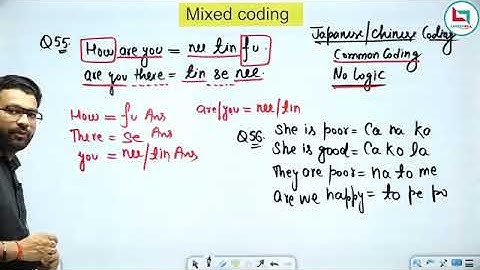 Mixed coding
Q55. How are you = nee tin fu.
are you there = tin se nee.
How = fu Ans
There = se Ans
you = nee/tin Ans
are/you = nee/tin
Japanese/Chinese Coding
Common Coding
No Logic
Q56. She is poor = Ca na ko
She is good = Ca ko la
They are poor = na to me
Are we happy = to pe po